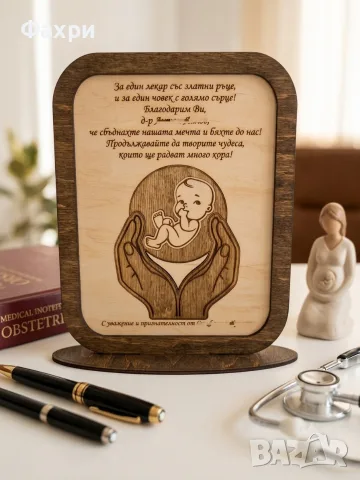 Фахри
За един лекар със златни ръце,
и за един човек с голямо сърце!
Благодарим Ви,
д-р
че сбъднахте нашата мечта и бяхте до нас!
Продължавайте да творите чудеса,
които ще радват много хора!
С уважение и признателност от
MEDICAL
OBSTETRI
BAZAR